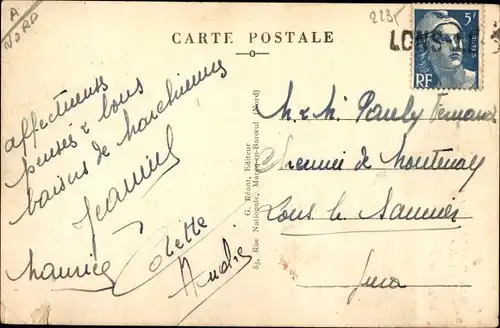 A
NORD
223
CARTE POSTALE
5F
RF
LONS-LE-S
affectueuses
pensées & bons
baisers de Marchiennes
Jeannine
Maurice Odette
Andrée
G. Réant, Editeur
83, Rue Nationale, Marcq-en-Barœul (Nord)
M. & Me Pauly Fernand
Chemin de Montenay
Lons le Saunier
Jura